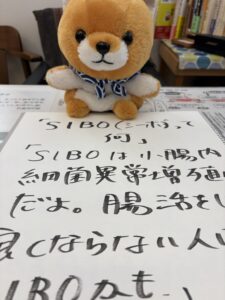 「SIBO(シーボ)って
何」
「SIBOは小腸内
細菌異常増殖
だよ。腸活をし
良くならない人は
IBOかも…」